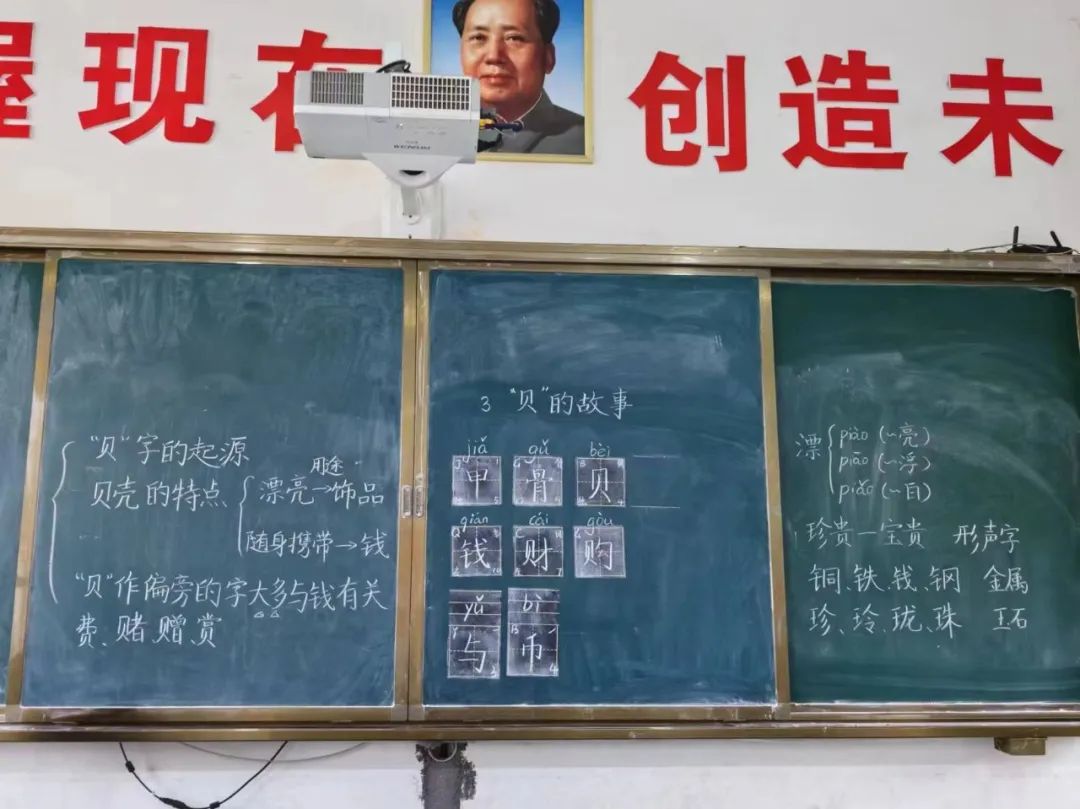 握现在 创造未
WENSHI
"贝"字的起源
贝壳的特点
漂亮→饰品
用途
随身携带→钱
"贝"作偏旁的字大多与钱有关
费、赌、赠、赏
3 "贝"的故事
jiǎ gǔ bèi
甲 骨 贝
qián cái gòu
钱 财 购
yǔ bì
与 币
漂
piào (~亮)
piāo (~浮)
piǎo (~白)
珍贵—宝贵 形声字
铜、铁、钱、钢 金属
珍、玲、珑、珠 玉石